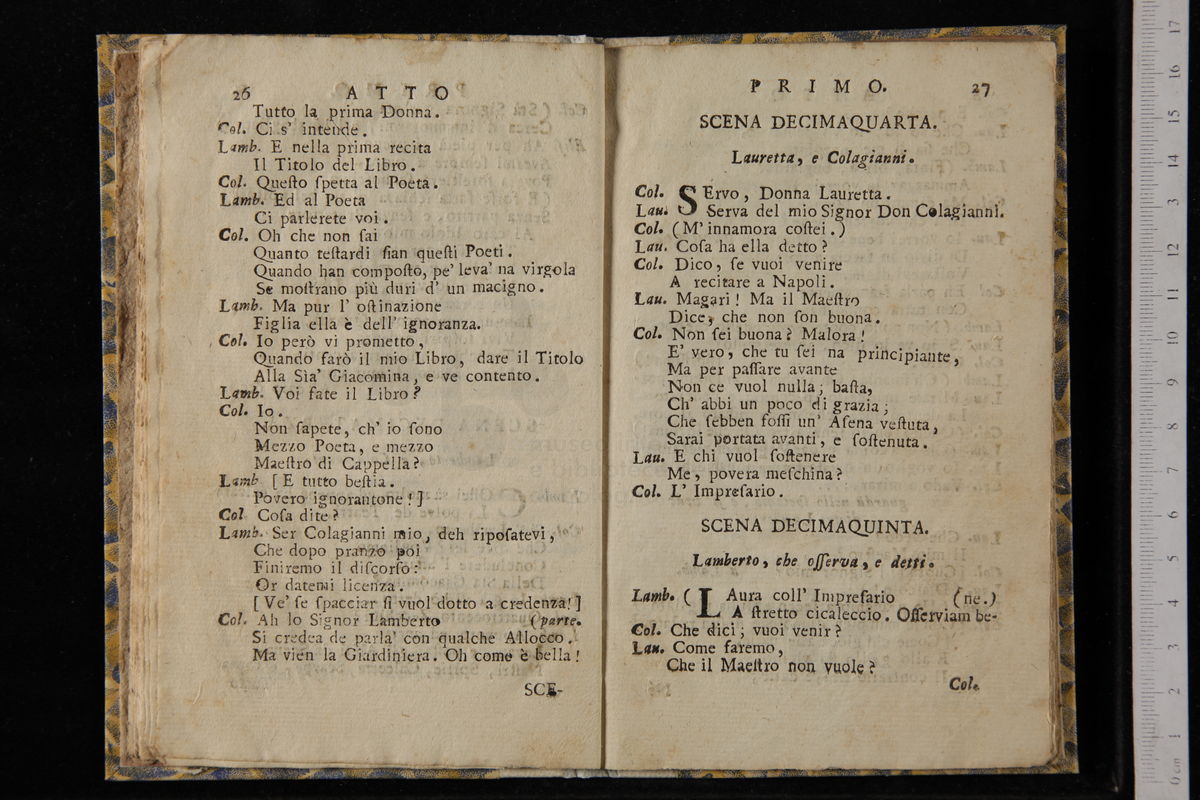 26 ATTO
Tutto la prima Donna.
Col. Ci s' intende.
Lamb. E nella prima recita
Il Titolo del Libro.
Col. Queſto ſpetta al Poeta.
Lamb. Ed al Poeta
Ci parlerete voi.
Col. Oh che non ſai
Quanto teſtardi ſian queſti Poeti.
Quando han compoſto, pe' leva' na virgola
Se moſtrano più duri d' un macigno.
Lamb. Ma pur l' oſtinazione
Figlia ella è dell' ignoranza.
Col. Io però vi prometto,
Quando farò il mio Libro, dare il Titolo
Alla Sia' Giacomina, e ve contento.
Lamb. Voi fate il Libro?
Col. Io.
Non ſapete, ch' io ſono
Mezzo Poeta, e mezzo
Maeſtro di Cappella?
Lamb [E tutto beſtia.
Povero ignorantone!]
Col Coſa dite?
Lamb. Ser Colagianni mio, deh ripoſatevi,
Che dopo pranzo poi
Finiremo il diſcorſo:
Or datemi licenza.
[Ve' ſe ſpacciar ſi vuol dotto a credenza!]
Col. Ah lo Signor Lamberto (parte.
Si credea de parla' con qualche Allocco.
Ma vien la Giardiniera. Oh come è bella!
SCE-
PRIMO. 27
SCENA DECIMAQUARTA.
Lauretta, e Colagianni.
Col. SErvo, Donna Lauretta.
Lau. Serva del mio Signor Don Colagianni.
Col. (M' innamora coſtei.)
Lau. Coſa ha ella detto?
Col. Dico, ſe vuoi venire
A recitare a Napoli.
Lau. Magari! Ma il Maeſtro
Dice, che non ſon buona.
Col. Non ſei buona? Malora!
E' vero, che tu ſei na principiante,
Ma per paſſare avante
Non ce vuol nulla; baſta,
Ch' abbi un poco di grazia;
Che ſebben foſſi un' Aſena veſtuta,
Sarai portata avanti, e ſoſtenuta.
Lau. E chi vuol ſoſtenere
Me, povera meſchina?
Col. L' Impreſario.
SCENA DECIMAQUINTA.
Lamberto, che oſſerva, e detti.
Lamb. (LAura coll' Impreſario (ne.)
A ſtretto cicaleccio. Oſſerviam be-
Col. Che dici; vuoi venir?
Lau. Come faremo,
Che il Maeſtro non vuole?
Col.
0 cm 1 2 3 4 5 6 7 8 9 10 11 12 13 14 15 16 17